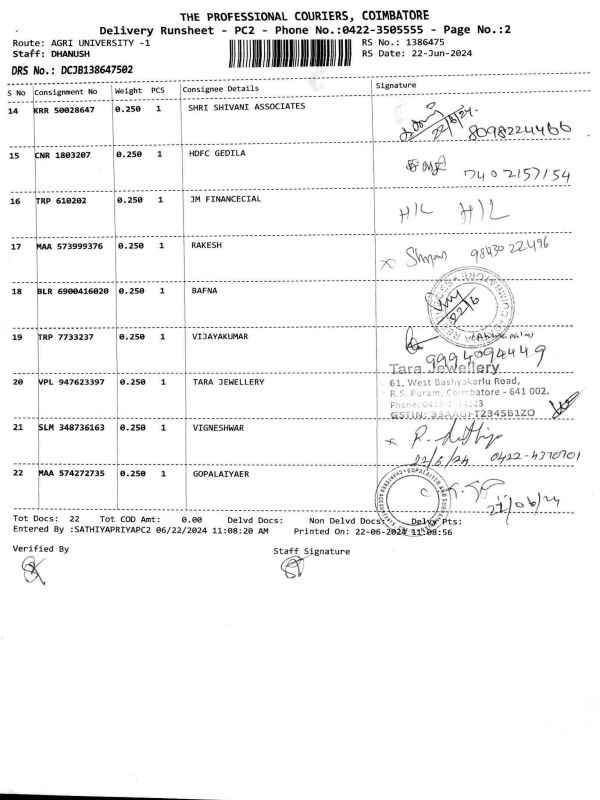 THE PROFESSIONAL COURIERS, COIMBATORE
Delivery Runsheet - PC2 - Phone No.:0422-3505555 - Page No.:2
Route: AGRI UNIVERSITY -1 RS No.: 1386475
Staff: DHANUSH RS Date: 22-Jun-2024
DRS No.: DCJB138647502
S No Consignment No Weight PCS Consignee Details Signature
14 KRR 50028647 0.250 1 SHRI SHIVANI ASSOCIATES
22/6/24. 8098224466
15 CNR 1803207 0.250 1 HDFC GEDILA
7402157154
16 TRP 610202 0.250 1 JM FINANCECIAL
H/L H/L
17 MAA 573999376 0.250 1 RAKESH
9843022496
18 BLR 6900416020 0.250 1 BAFNA
22/6
19 TRP 7733237 0.250 1 VIJAYAKUMAR
9994094449
Tara Jewellery
20 VPL 947623397 0.250 1 TARA JEWELLERY 61, West Bashyakarlu Road,
R.S. Puram, Coimbatore - 641 002.
Phone:
GSTIN: 33AAGFT2345B1ZO
21 SLM 348736163 0.250 1 VIGNESHWAR
22/6/24 0422-4370701
22 MAA 574272735 0.250 1 GOPALAIYAER
22/06/24
Tot Docs: 22 Tot COD Amt: 0.00 Delvd Docs: Non Delvd Docs: Delvd Pts:
Entered By :SATHIYAPRIYAPC2 06/22/2024 11:08:20 AM Printed On: 22-06-2024 11:08:56
Verified By Staff Signature